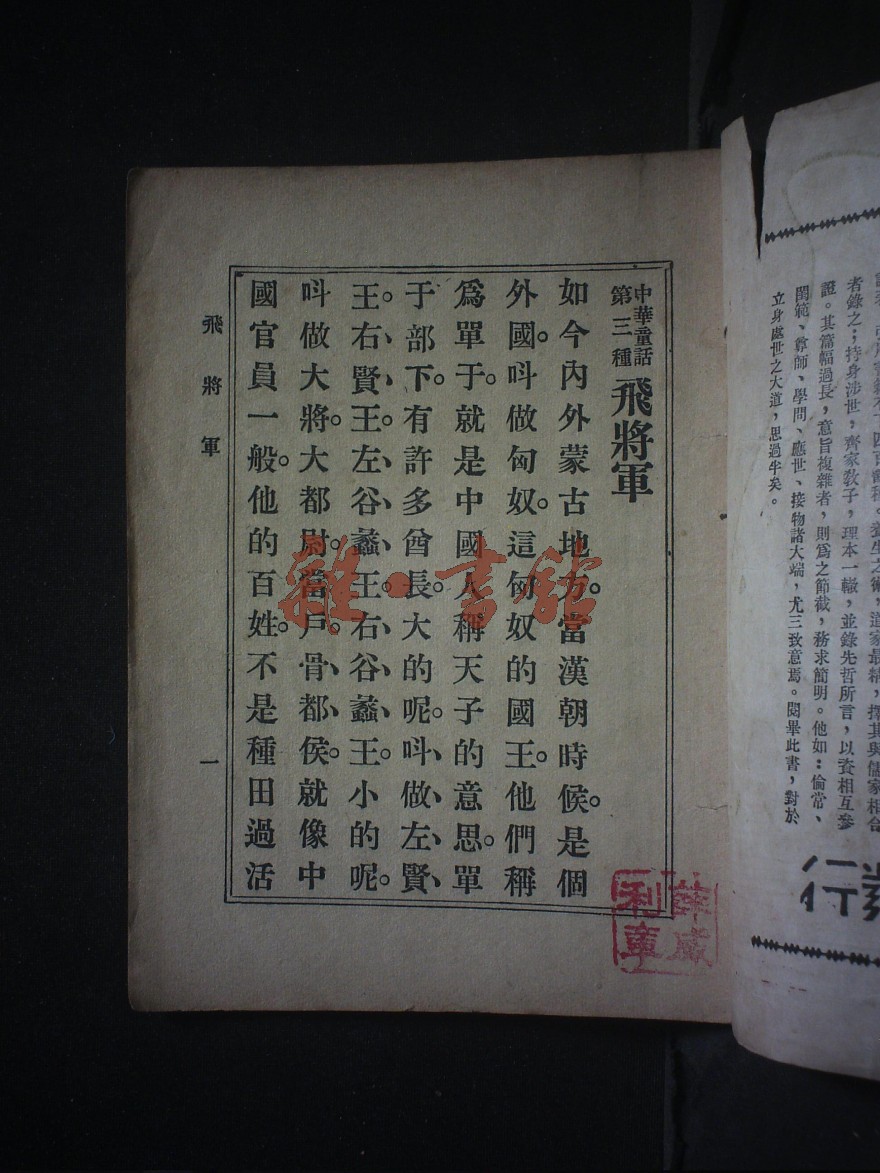 中華童話
第三種
飛將軍
如今內外蒙古地方。當漢朝時候。是個
外國。呌做匈奴。這匈奴的國王。他們稱
爲單于。就是中國人稱天子的意思。單
于部下。有許多酋長。大的呢。呌做左賢
王。右賢王。左谷蠡王。右谷蠡王。小的呢。
呌做大將。大都尉。當戶。骨都侯。就像中
國官員一般。他的百姓。不是種田過活
飛將軍
一
雜·書館
薛威
利章
者錄之；持身涉世，齊家教子，理本一轍，並錄先哲所言，以資相互參
證。其篇幅過長，意旨複雜者，則爲之節截，務求簡明。他如：倫常、
閨範、尊師、學問、應世、接物諸大端，尤三致意焉。閱畢此書，對於
立身處世之大道，思過半矣。
行